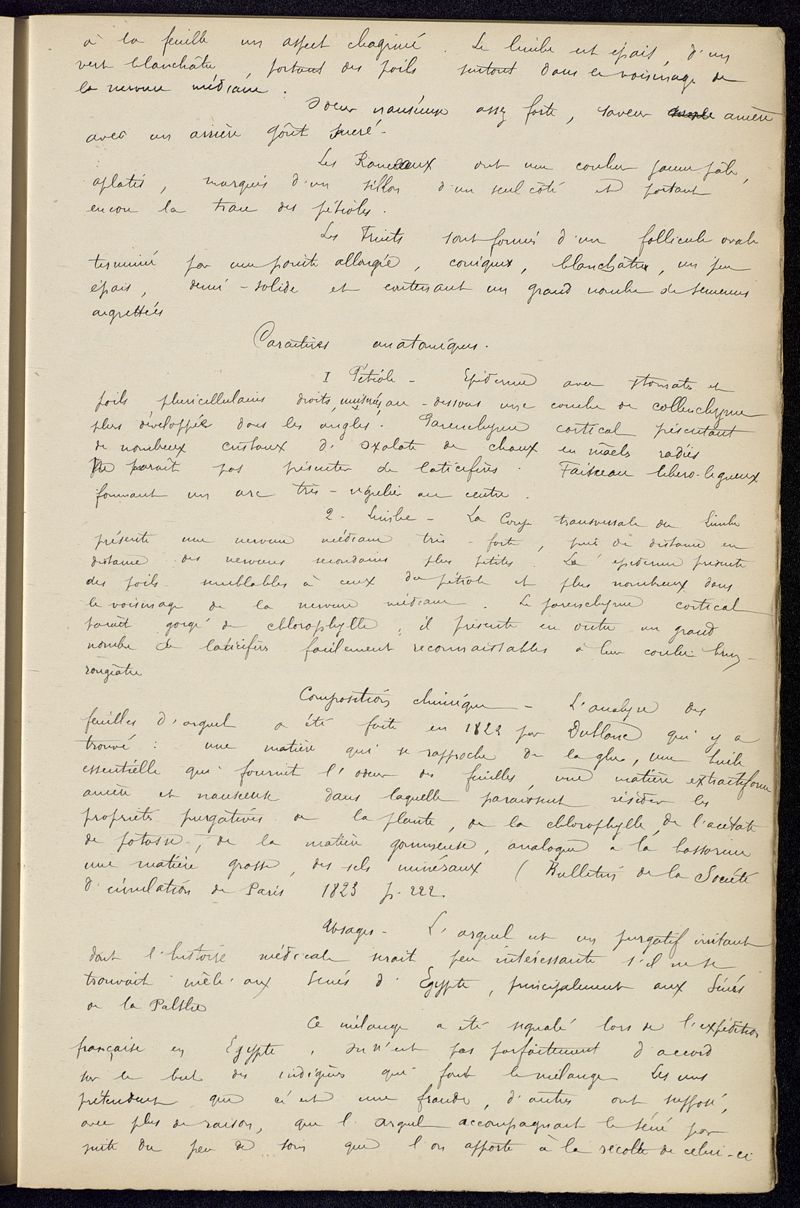 à la feuille un aspect chagriné. Le limbe est épais, d'un
vert blanchâtre, portant des poils surtout dans le voisinage de
la nervure médiane.
Odeur nauséeuse assez forte, saveur amère
avec un arrière goût sucré.
Les Rameaux ont une couleur jaune pâle,
aplatis, marqués d'un sillon d'un seul côté et portant
encore la trace des pétioles.
Les Fruits sont formés d'un follicule ovale
terminé par une pointe allongée, coniques, blanchâtre, un peu
épais, demi-solide et contenant un grand nombre de semences
aigrettées
Caractères anatomiques.
I Pétiole - Epiderme avec stomates et
poils pluricellulaires droits, au-dessous une couche de collenchyme
plus développée dans les angles. Parenchyme cortical présentant
de nombreux cristaux d'oxalate de chaux en mâcles radiés
Ne parait pas présenter de laticifères. Faisceau libero-ligneux
formant un arc très-régulier au centre.
2 - Limbe - La Coupe transversale du Limbe
présente une nervure médiane très-forte, puis de distance en
distance des nervures secondaires plus petites. La épiderme présente
des poils semblables à ceux du pétiole et plus nombreux dans
le voisinage de la nervure médiane. Le parenchyme cortical
parait gorgé de chlorophylle; il présente en outre un grand
nombre de laticifères facilement reconnaissables à leur couleur brun-
rougeâtre
Composition chimique - L'analyse des
feuilles d'arguel a été faite en 1823 par Dublanc qui y a
trouvé : une matière qui se rapproche de la glu, une huile
essentielle qui fournit l'odeur des feuilles, une matière extractiforme
amère et nauseuse dans laquelle paraissent résider les
propriétés purgatives de la plante, de la chlorophylle, de l'acétate
de potasse, de la matière gommeuse, analogue à la bassorine
une matière grasse, des sels minéraux (Bulletins de la Société
d'émulation de Paris 1823 p. 222.
Usages - L'arguel est un purgatif irritant
dont l'histoire médicale serait peu intéressante s'il ne se
trouvait mêlé aux Sénés d'Egypte, principalement aux Sénés
de la Palthe
Ce mélange a été signalé lors de l'expédition
française en Egypte. On n'est pas parfaitement d'accord
sur le but des indigènes qui font le mélange Les uns
prétendent que c'est une fraude, d'autres ont supposé,
avec plus de raison, que l'arguel accompagnait le séné par
suite du peu de soin que l'on apporte à la récolte de celui-ci